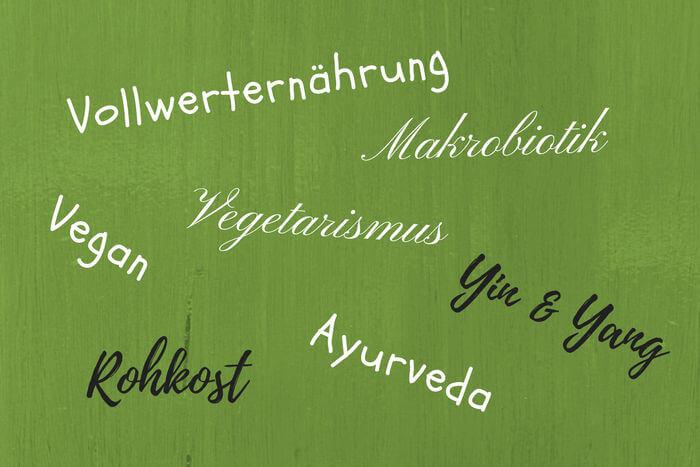 Vollwerternährung
Makrobiotik
Vegetarismus
Vegan
Yin & Yang
Ayurveda
Rohkost